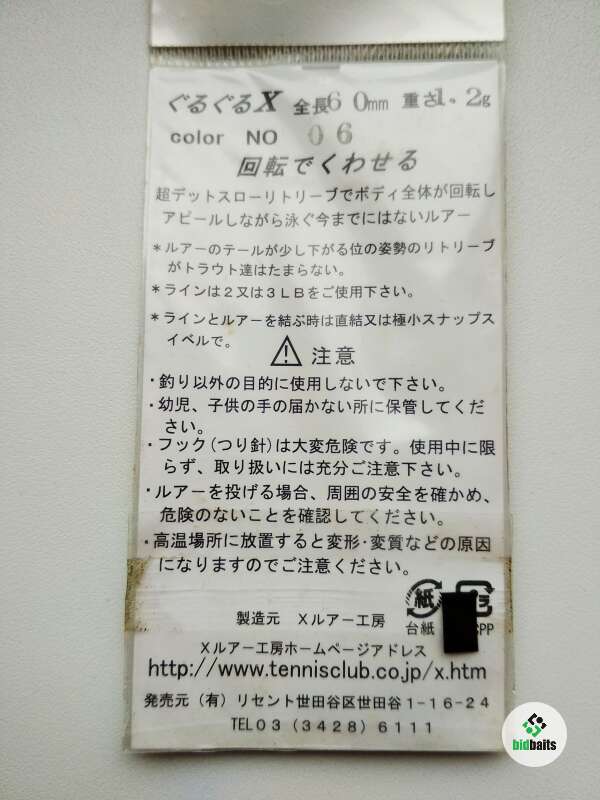 ぐるぐるX 全長60mm 重さ1.2g
color NO 06
回転でくわせる
超デットスローリトリーブでボディ全体が回転し
アピールしながら泳ぐ今までにはないルアー
*ルアーのテールが少し下がる位の姿勢のリトリーブ
がトラウト達はたまらない。
*ラインは2又は3LBをご使用下さい。
*ラインとルアーを結ぶ時は直結又は極小スナップス
イベルで。
注意
・釣り以外の目的に使用しないで下さい。
・幼児、子供の手の届かない所に保管してくだ
さい。
・フック(つり針)は大変危険です。使用中に限
らず、取り扱いには充分ご注意下さい。
・ルアーを投げる場合、周囲の安全を確かめ、
危険のないことを確認してください。
・高温場所に放置すると変形・変質などの原因
になりますのでご注意ください。
紙 プラ
製造元 Xルアー工房 台紙 PP
Xルアー工房ホームページアドレス
http://www.tennisclub.co.jp/x.htm
発売元(有)リセント世田谷区世田谷1-16-24
TEL03(3428)6111
bidbaits